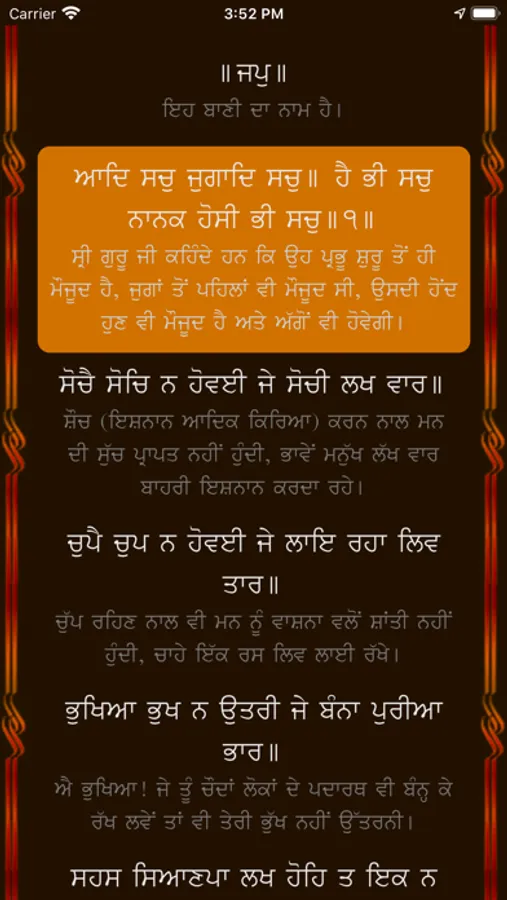 Carrier 3:52 PM
॥ਜਪੁ॥
ਇਹ ਬਾਣੀ ਦਾ ਨਾਮ ਹੈ।
ਆਦਿ ਸਚੁ ਜੁਗਾਦਿ ਸਚੁ॥ ਹੈ ਭੀ ਸਚੁ
ਨਾਨਕ ਹੋਸੀ ਭੀ ਸਚੁ॥੧॥
ਸ੍ਰੀ ਗੁਰੂ ਜੀ ਕਹਿੰਦੇ ਹਨ ਕਿ ਉਹ ਪ੍ਰਭੂ ਸ਼ੁਰੂ ਤੋਂ ਹੀ
ਮੌਜੂਦ ਹੈ, ਜੁਗਾਂ ਤੋਂ ਪਹਿਲਾਂ ਵੀ ਮੌਜੂਦ ਸੀ, ਉਸਦੀ ਹੋਂਦ
ਹੁਣ ਵੀ ਮੌਜੂਦ ਹੈ ਅਤੇ ਅੱਗੋਂ ਵੀ ਹੋਵੇਗੀ।
ਸੋਚੈ ਸੋਚਿ ਨ ਹੋਵਈ ਜੇ ਸੋਚੀ ਲਖ ਵਾਰ॥
ਸ਼ੌਚ (ਇਸ਼ਨਾਨ ਆਦਿਕ ਕਿਰਿਆ) ਕਰਨ ਨਾਲ ਮਨ
ਦੀ ਸੁੱਚ ਪ੍ਰਾਪਤ ਨਹੀਂ ਹੁੰਦੀ, ਭਾਵੇਂ ਮਨੁੱਖ ਲੱਖ ਵਾਰ
ਬਾਹਰੀ ਇਸ਼ਨਾਨ ਕਰਦਾ ਰਹੇ।
ਚੁਪੈ ਚੁਪ ਨ ਹੋਵਈ ਜੇ ਲਾਇ ਰਹਾ ਲਿਵ
ਤਾਰ॥
ਚੁੱਪ ਰਹਿਣ ਨਾਲ ਵੀ ਮਨ ਨੂੰ ਵਾਸ਼ਨਾ ਵਲੋਂ ਸ਼ਾਂਤੀ ਨਹੀਂ
ਹੁੰਦੀ, ਚਾਹੇ ਇੱਕ ਰਸ ਲਿਵ ਲਾਈ ਰੱਖੇ।
ਭੁਖਿਆ ਭੁਖ ਨ ਉਤਰੀ ਜੇ ਬੰਨਾ ਪੁਰੀਆ
ਭਾਰ॥
ਐ ਭੁਖਿਆ! ਜੇ ਤੂੰ ਚੌਦਾਂ ਲੋਕਾਂ ਦੇ ਪਦਾਰਥ ਵੀ ਬੰਨ੍ਹ ਕੇ
ਰੱਖ ਲਵੇਂ ਤਾਂ ਵੀ ਤੇਰੀ ਭੁੱਖ ਨਹੀਂ ਉੱਤਰਨੀ।
ਸਹਸ ਸਿਆਣਪਾ ਲਖ ਹੋਹਿ ਤ ਇਕ ਨ